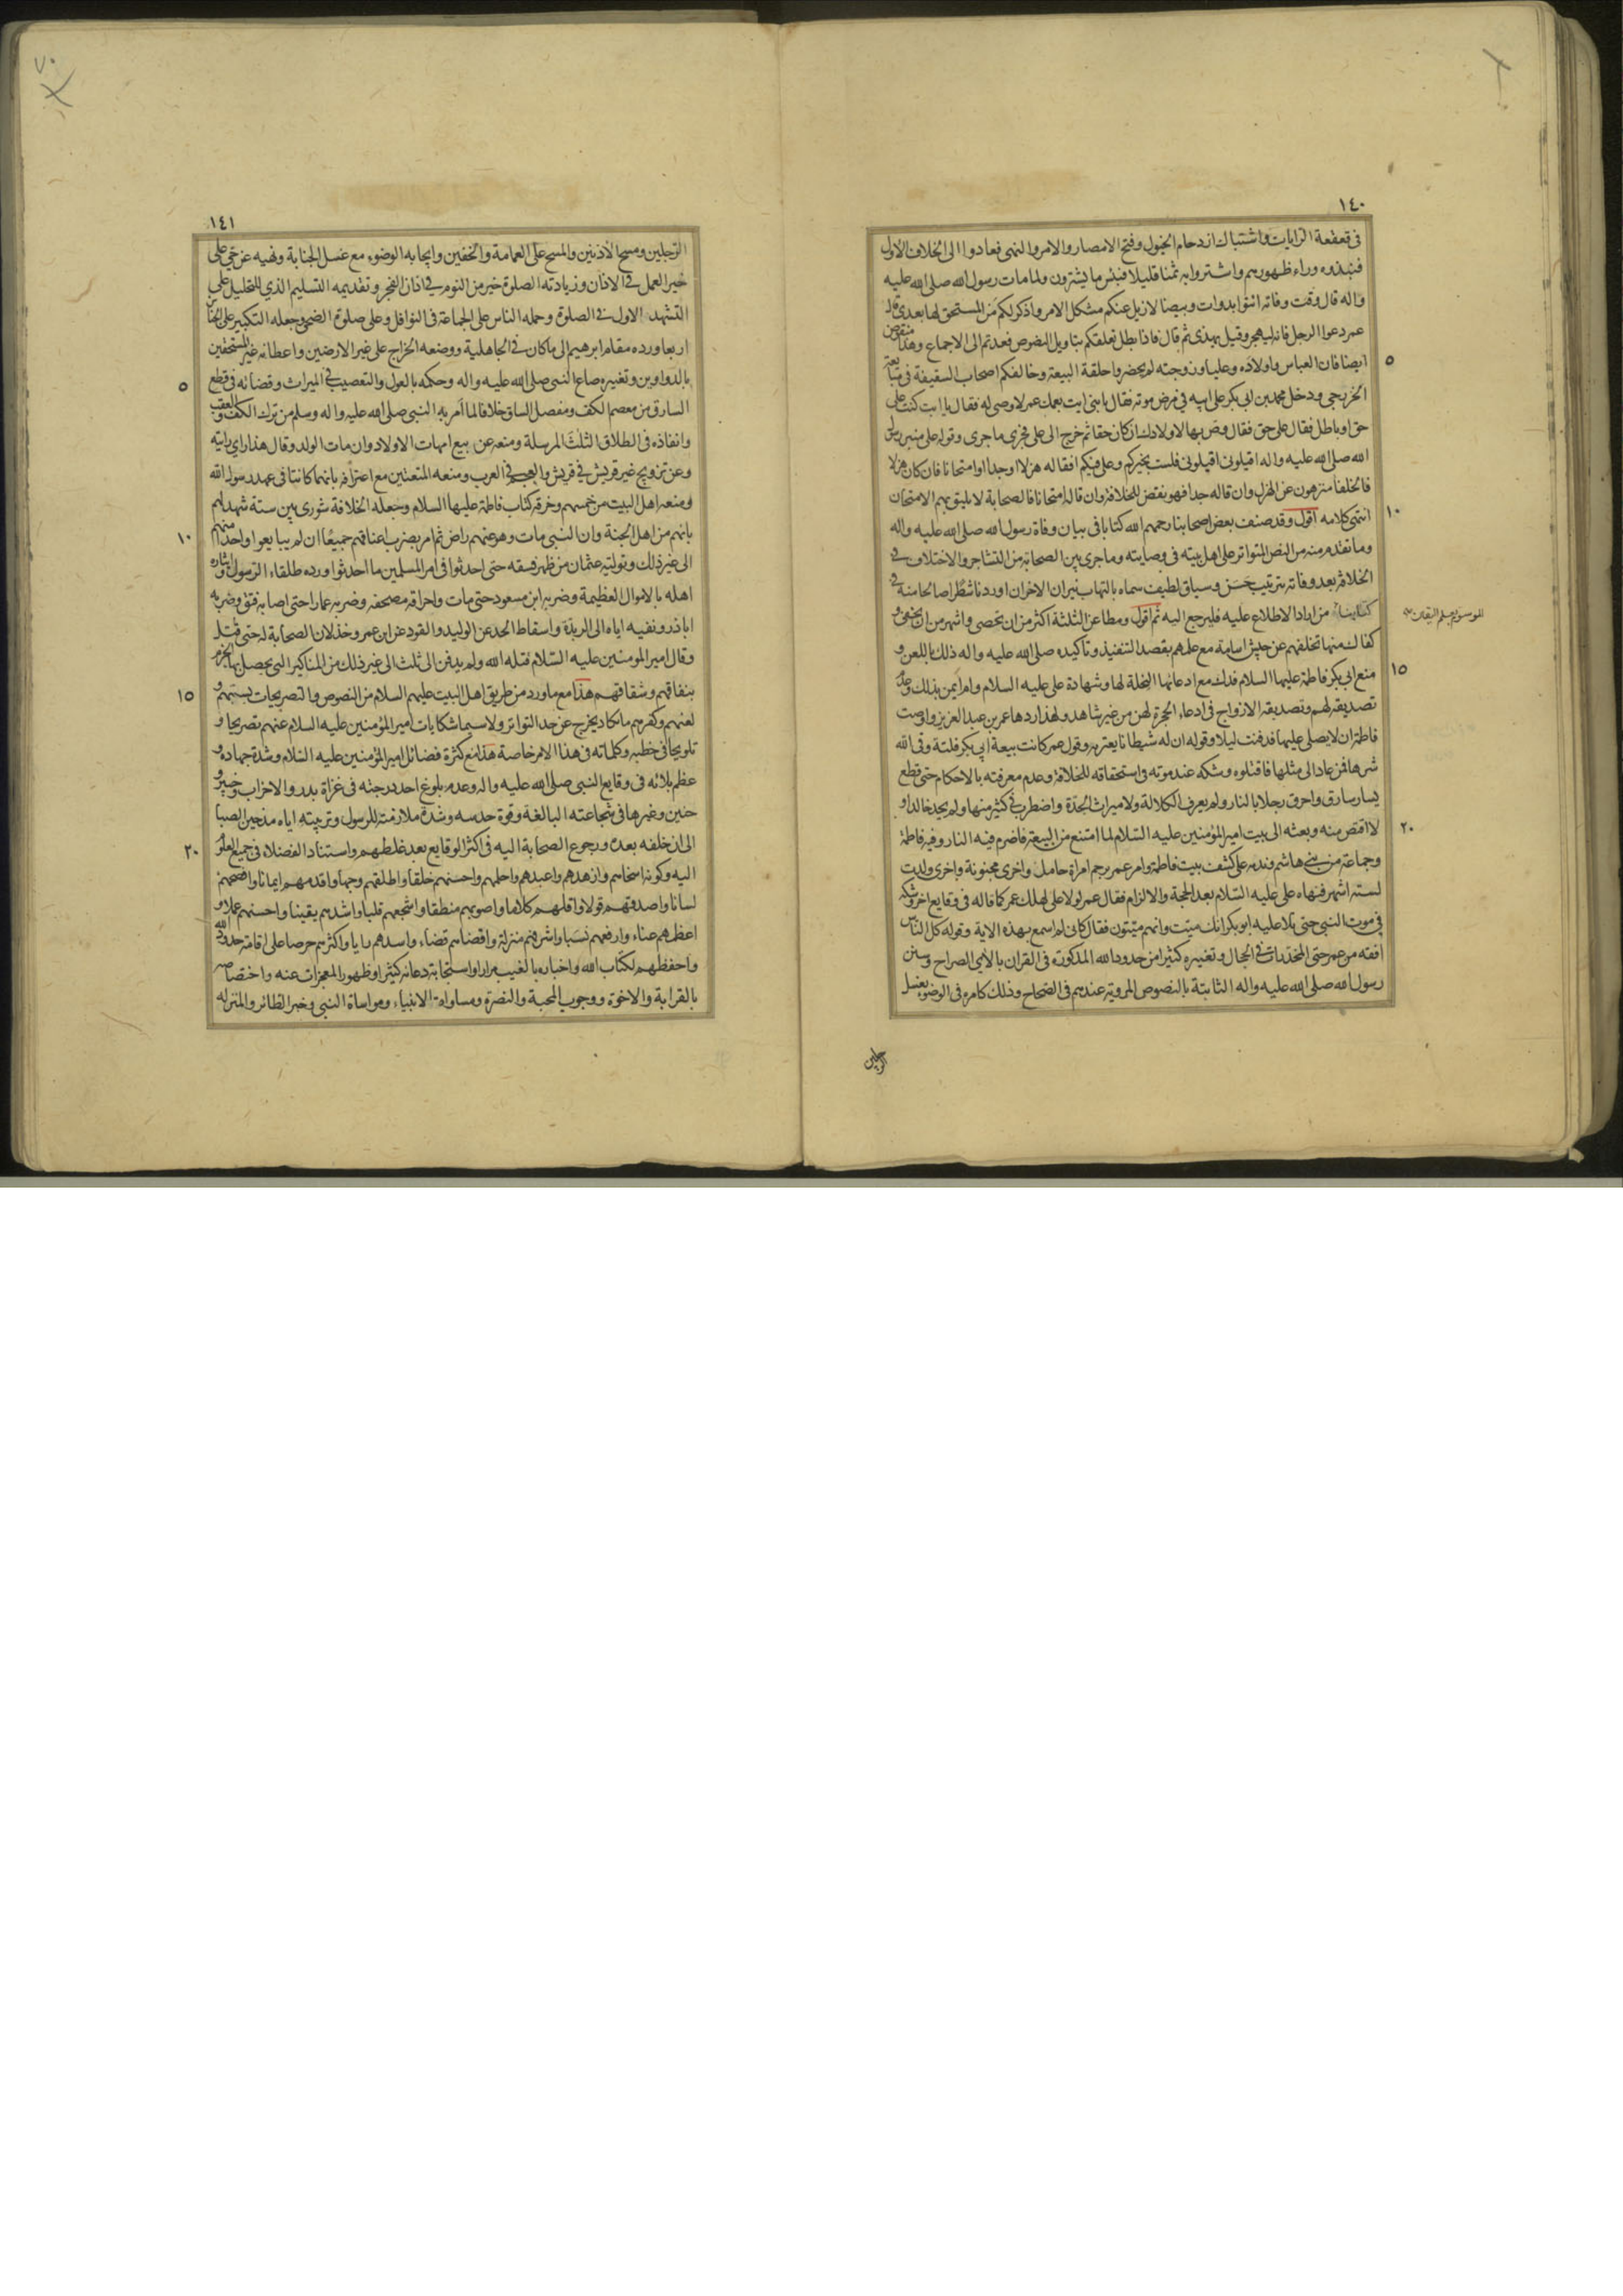 ١٤٠
فى قعقعة الرايات واشتباك ازدحام الخيول وفتح الامصار والامر والنهى فعادوا الى الخلاف الاول
فنبذوه وراء ظهورهم واشتروا به ثمنا قليلا فبئس ما يشترون ولما مات رسول الله صلى الله عليه
واله قال وقت وفاته ائتوا بدوات وبيضا لازيل عنكم مشكل الامر واذكر لكم من المستحق لها بعدى قال
عمر دعوا الرجل فانه ليهجر وقيل يهذى ثم قال فاذا بطل تعلقكم بتاويل النصوص فعدتم الى الاجماع وهذا منقوض
٥
ايضا فان العباس واولاده وعليا وزوجته لم يحضروا حلقة البيعة وخالفكم اصحاب السقيفة فى متابعة
الخزرجى ودخل محمد بن ابى بكر على ابيه فى مرض موته فقال يا بنى ايت بعمك عمر لاوصى له فقال يا ابت كنت على
حق او باطل فقال على حق فقال وص بها لاولادك ان كان حقا ثم خرج الى على فجرى ما جرى وقوله على منبر رسول
الله صلى الله عليه واله اقيلونى اقيلونى فلست بخيركم وعلى فيكم افقاله هزلا او جدا او امتحانا فان كان هزلا
فالخلفا منزهون عن الهزل وان قاله جدا فهو نقض للخلافة وان قاله امتحانا فالصحابة لا يليق بهم الامتحان
١٠
انتهى كلامه اقول وقد صنف بعض اصحابنا رحمهم الله كتابا فى بيان وفاة رسول الله صلى الله عليه واله
وما تقدم منه من النص المتواتر على اهل بيته فى وصايته وما جرى بين الصحابة من التشاجر والاختلاف فى
الخلافة بعد وفاته بترتيب حسن وسياق لطيف سماه بالتهاب نيران الاحزان اوردنا شطرا صالحا منه فى
كتابنا من اراد الاطلاع عليه فليرجع اليه ثم اقول ومطاعن الثلثة اكثر من ان تحصى واشهر من ان يخفى و
الموسوم بعلم اليقين
كفاك منها تخلفهم عن جيش اسامة مع علمهم بقصد التنفيذ وتاكيده صلى الله عليه واله ذلك باللعن و
١٥
منع ابى بكر فاطمة عليها السلام فدك مع ادعائها النحلة لها وشهادة على عليه السلام وام ايمن بذلك وعدم
تصديقه لهم وتصديقه الازواج فى ادعاء الحجرة لهن من غير شاهد ولهذا ردها عمر بن عبد العزيز واوصت
فاطمة ان لا يصلى عليها فدفنت ليلا وقوله ان له شيطانا يعتريه وقول عمر كانت بيعة ابى بكر فلتة وقى الله
شرها فمن عاد الى مثلها فاقتلوه وشكه عند موته فى استحقاقه للخلافة وعدم معرفته بالاحكام حتى قطع
يسار سارق واحرق رجلا بالنار ولم يعرف الكلالة ولا ميراث الجدة واضطرب فى كثير منها ولم يحد خالدا و
٢٠
لا اقتص منه وبعثه الى بيت امير المؤمنين عليه السلام لما امتنع من البيعة فاضرم فيه النار وفيه فاطمة
وجماعة من بنى هاشم وندمه على كشف بيت فاطمة وامر عمر برجم امراة حامل واخرى مجنونة واخرى ولدت
لستة اشهر فنهاه على عليه السلام بعد الحجة والالزام فقال عمر لولا على لهلك عمر كما قاله فى وقايع اخر وشكه
فى موت النبى حتى تلا عليه ابو بكر انك ميت وانهم ميتون فقال كانى لم اسمع بهذه الاية وقوله كل الناس
افقه من عمر حتى المخدرات فى الحجال وتغييره كثيرا من حدود الله المذكورة فى القران بالاى الصراح وسنن
رسول الله صلى الله عليه واله الثابتة بالنصوص المروية عندهم فى الصحاح وذلك كامره فى الوضوء بغسل
الرجلين
١٤١
الرجلين ومسح الاذنين والمسح على العمامة والخفين وايجابه الوضوء مع غسل الجنابة ونهيه عن حى على
خير العمل فى الاذان وزيادته الصلوة خير من النوم فى اذان الفجر وتقديمه التسليم الذى للتحليل على
التشهد الاول فى الصلوة وحمله الناس على الجماعة فى النوافل وعلى صلوة الضحى وجعله التكبير على الجنائز
اربعا ورده مقام ابرهيم الى ما كان فى الجاهلية ووضعه الخراج على غير الارضين واعطائه غير المستحقين
٥
بالدواوين وتغييره صاع النبى صلى الله عليه واله وحكمه بالعول والتعصيب فى الميراث وقضائه فى قطع
السارق من معصم الكف ومفصل الساق خلافا لما امر به النبى صلى الله عليه واله وسلم من ترك الكف والعقب
وانفاذه فى الطلاق الثلث المرسلة ومنعه عن بيع امهات الاولاد وان مات الولد وقال هذا راى رايته
وعن تزويج غير قريش فى قريش والعجم فى العرب ومنعه المتعتين مع اعترافه بانهما كانتا فى عهد رسول الله
ومنعه اهل البيت من خمسهم وخرقه كتاب فاطمة عليها السلام وجعله الخلافة شورى بين ستة شهد لهم
١٠
بانهم من اهل الجنة وان النبى مات وهو عنهم راض ثم امر بضرب اعناقهم جميعا ان لم يبايعوا واحدا منهم
الى غير ذلك وتوليته عثمان من ظهر فسقه حتى احدثوا فى امر المسلمين ما احدثوا ورده طلقاء الرسول وايثاره
اهله بالاموال العظيمة وضربه ابن مسعود حتى مات واحراقه مصحفه وضربه عمارا حتى اصابه فتق وضربه
اباذر ونفيه اياه الى الربذة واسقاط الحد عن الوليد والقود عن ابن عمر وخذلان الصحابة له حتى قتل
وقال امير المومنين عليه السلام قتله الله ولم يدفن الى ثلث الى غير ذلك من المناكير التى يحصل بها الجزم
١٥
بنفاقهم وشقاقهم هذا مع ما ورد من طريق اهل البيت عليهم السلام من النصوص والتصريحات بسبهم و
لعنهم وكفرهم ما يكاد يخرج عن حد التواتر ولا سيما شكايات امير المؤمنين عليه السلام عنهم تصريحا و
تلويحا فى خطبه وكلماته فى هذا الامر خاصة هذا مع كثرة فضائل امير المؤمنين عليه السلام وشدة جهاده و
عظم بلائه فى وقايع النبى صلى الله عليه واله وعدم بلوغ احد درجته فى غزاة بدر والاحزاب وخيبر و
حنين وغيرها فى شجاعته البالغة وقوة حدسه وشدة ملازمته للرسول وتربيته اياه من حين الصبا
٢٠
الى ان خلفه بعده ورجوع الصحابة اليه فى اكثر الوقايع بعد غلطهم واستناد الفضلاء فى جميع العلوم
اليه وكونه اسخاهم وازهدهم واعبدهم واحلمهم واحسنهم خلقا واطلقهم وجها واقدمهم ايمانا وافصحهم
لسانا واصدقهم قولا واقلهم كلاما واصوبهم منطقا واشجعهم قلبا واشدهم يقينا واحسنهم عملا و
اعظمهم عناء وارفعهم نسبا واشرفهم منزلة واقضاهم قضاء واسدهم رايا واكثرهم حرصا على اقامة حدود الله
واحفظهم لكتاب الله واخباره بالغيب مرارا واستجابة دعائه كثيرا وظهور المعجزات عنه واختصاصه
بالقرابة والاخوة ووجوب المحبة والنصرة ومساواة الانبياء ومواساة النبى وخبر الطائر والمنزله